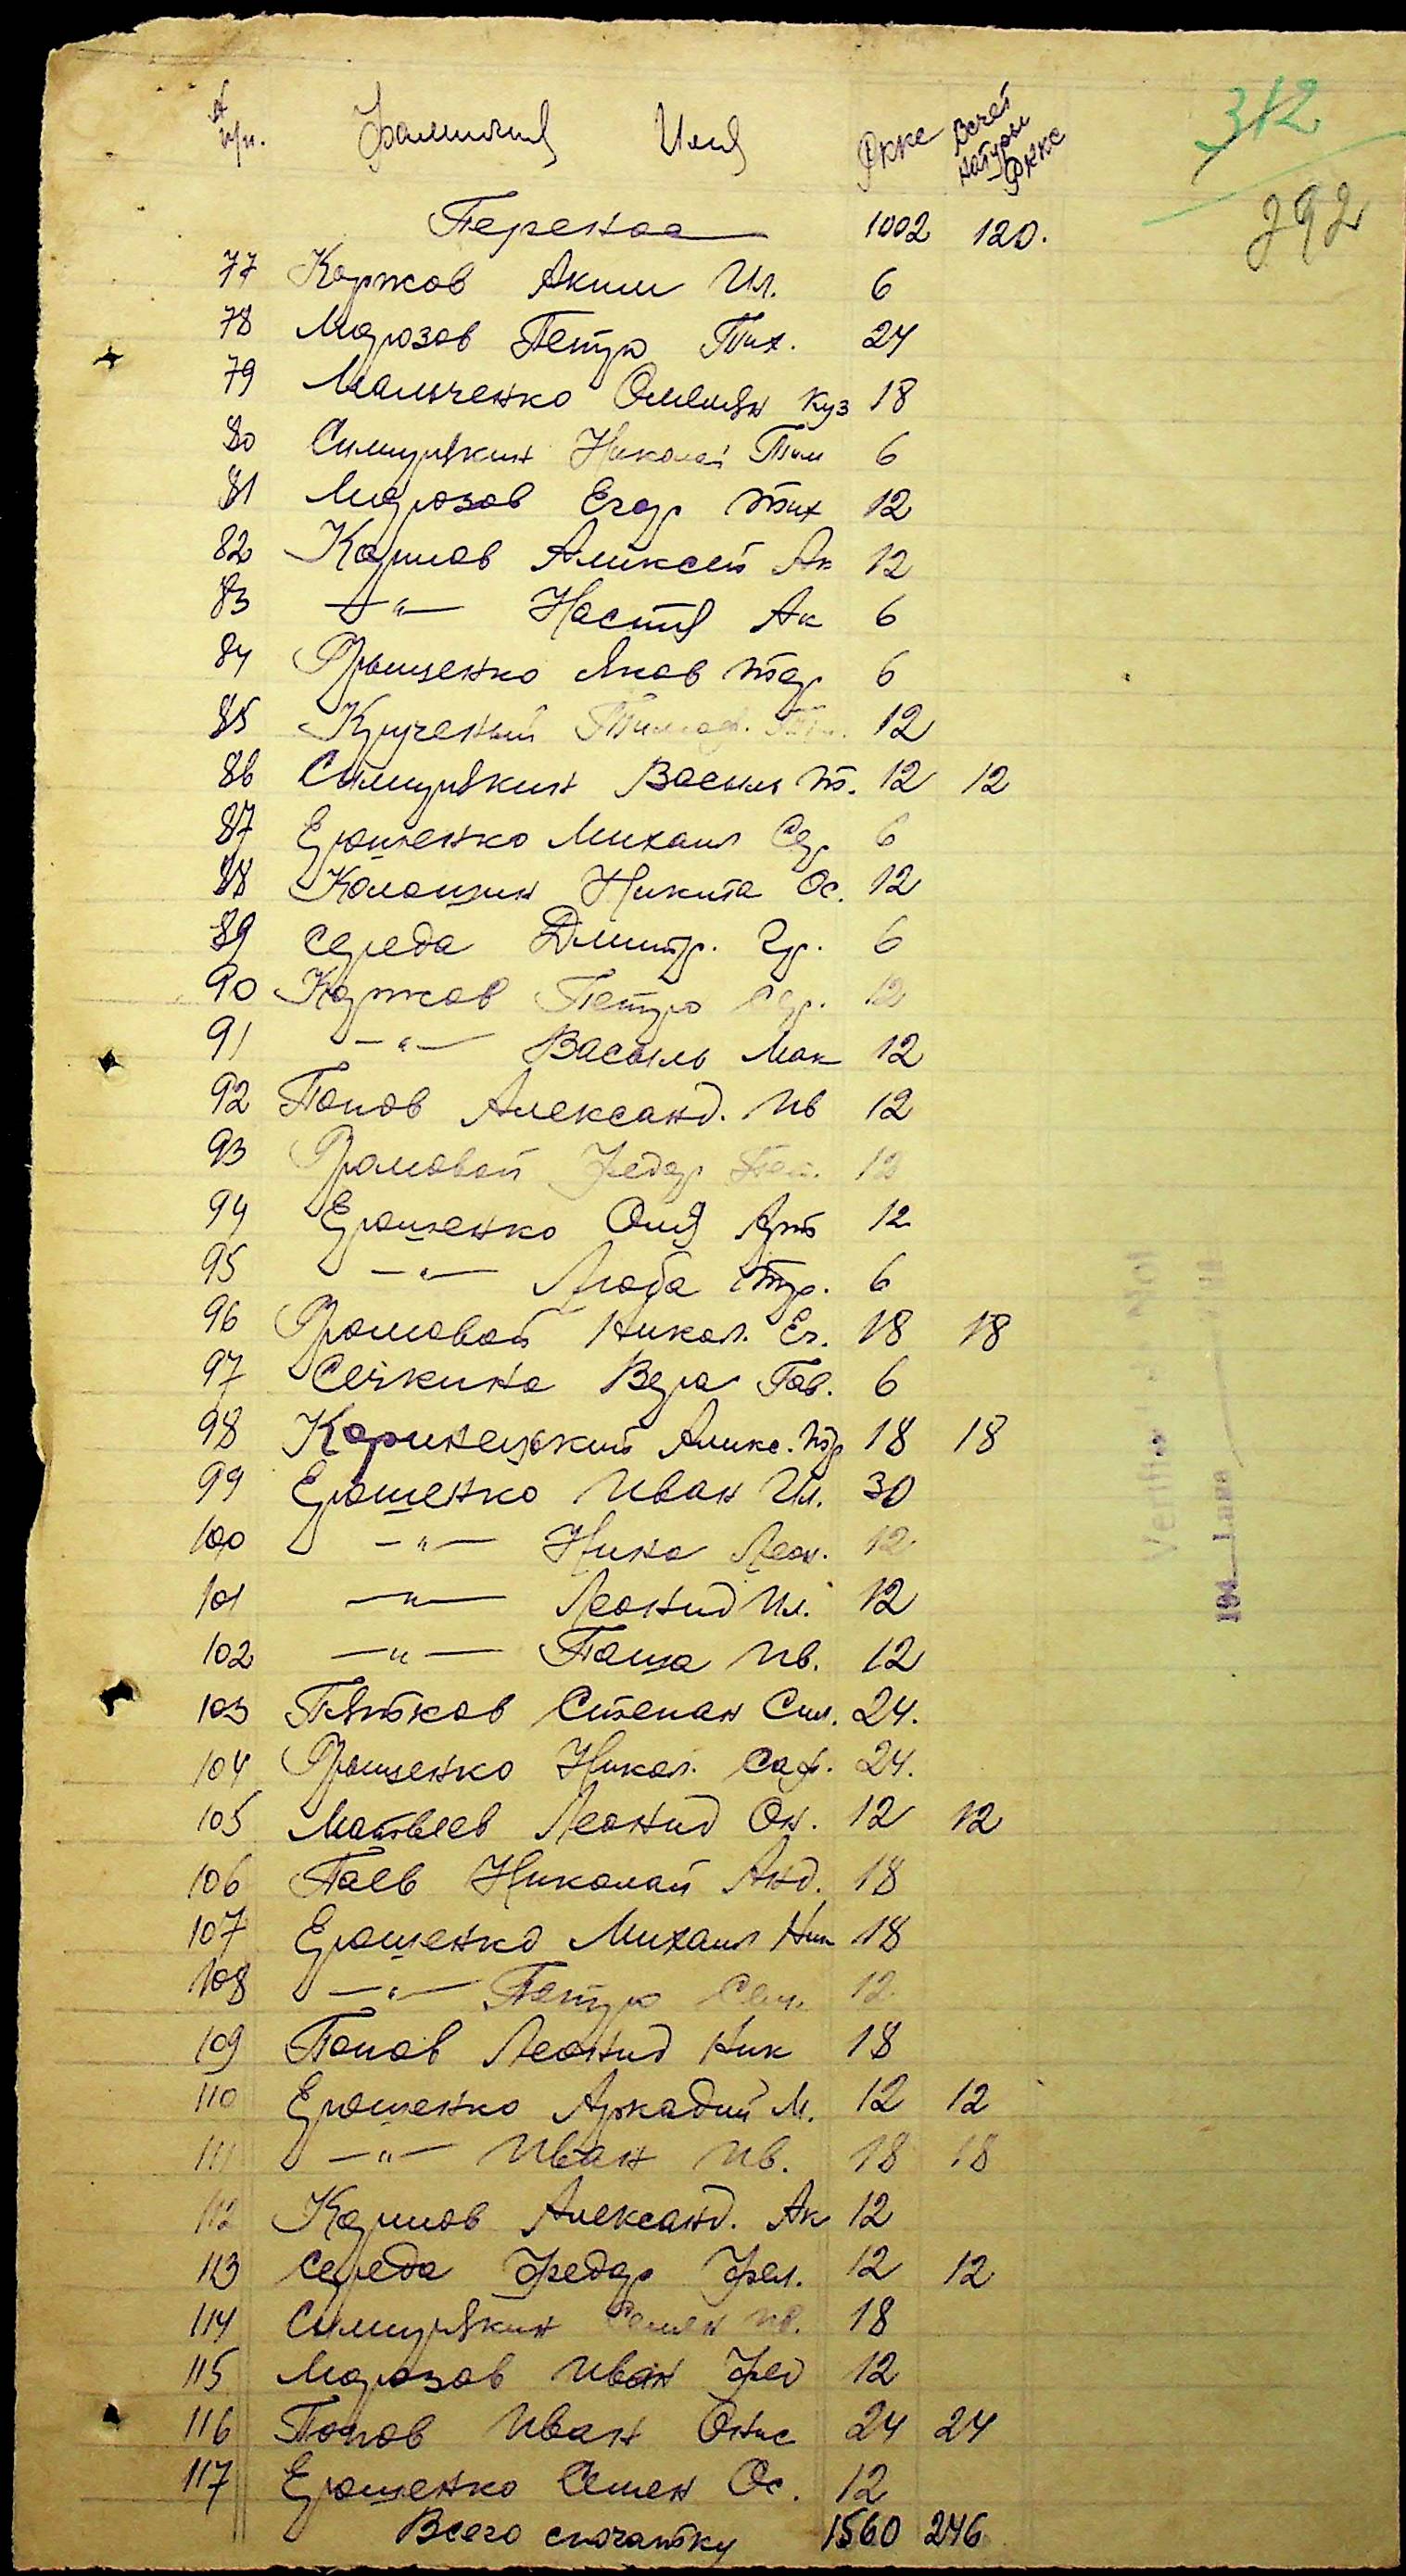 № п/п. Фамилия Имя Фкке Всчет натуры Фкке
312
292
Перенос 1002 120.
77 Коржов Аким Ил. 6
78 Морозов Петро Тих. 24
79 Мальченко Омелян Куз 18
80 Симулякин Николай Тим 6
81 Морозов Егор Тих 12
82 Корнов Аликсей Ак 12
83 —"— Настя Ак 6
84 Грищенко Яков Тар 6
85 Крученый Тимоф. 12
86 Симулякин Василь Т. 12 12
87 Ерошенко Михаил Сер 6
88 Колошин Никита Ос. 12
89 Середа Дмитр. Гр. 6
90 Коржов Петро Сер. 12
91 —"— Василь Мак 12
92 Попов Александ. Ив 12
93 Громовой Федор 12
94 Ерошенко Оля Арт 12
95 —"— Люба 6
96 Громовой Никол. Ег. 18 18
97 Сечкина Вера Гав. 6
98 Кориневский Аликс. 18 18
99 Ерошенко Иван Ил. 30
100 —"— Нина Леон. 12
101 —"— Леонид Ил. 12
102 —"— Паша Ив. 12
103 Пятков Степан Сим. 24.
104 Грищенко Никол. Саф. 24.
105 Матвеев Леонид Он. 12 12
106 Паев Николай Анд. 18
107 Ерошенко Михаил Ник 18
108 —"— Петро Сем. 12
109 Попов Леонид Ник 18
110 Ерошенко Аркадий М. 12 12
111 —"— Иван Ив. 18 18
112 Корнов Александ. Ак 12
113 Середа Федор Фил. 12 12
114 Симулякин Семен Ив. 18
115 Морозов Иван Фед 12
116 Попов Иван Онис 24 24
117 Ерошенко Семен Ос. 12
Всего спочатку 1560 246